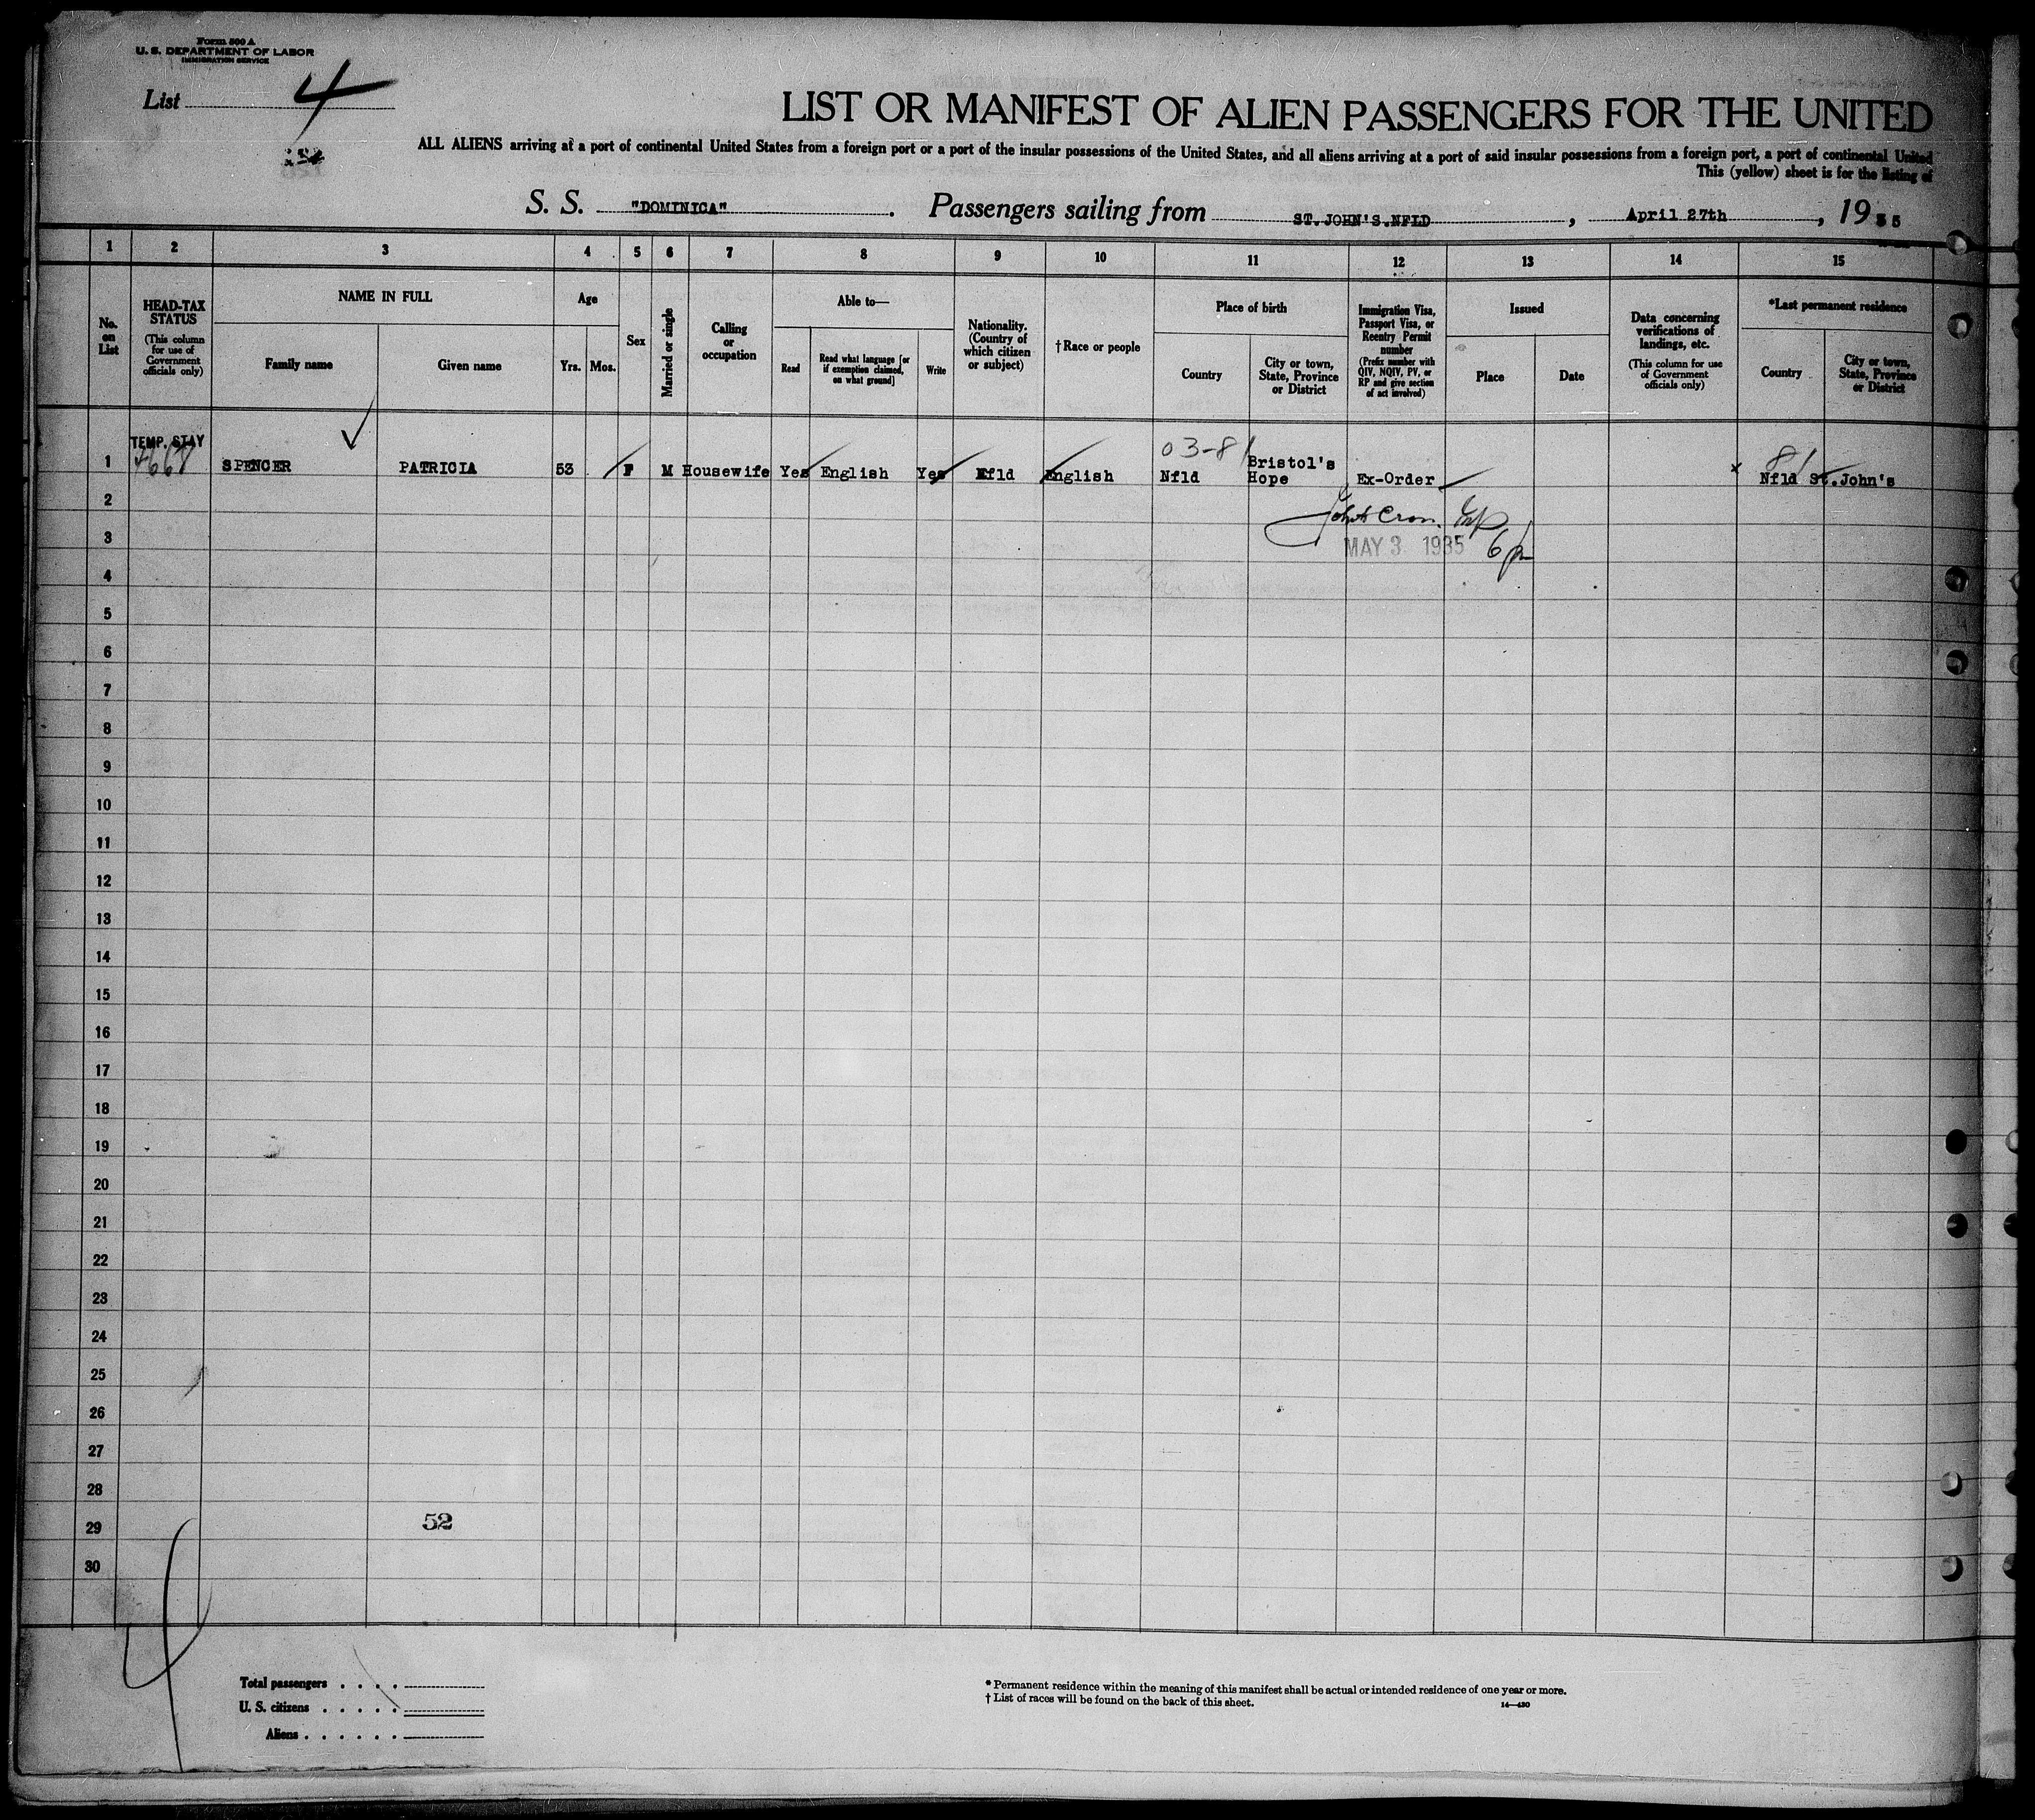 Form 500 A
U. S. DEPARTMENT OF LABOR
IMMIGRATION SERVICE
List 4
LIST OR MANIFEST OF ALIEN PASSENGERS FOR THE UNITED
ALL ALIENS arriving at a port of continental United States from a foreign port or a port of the insular possessions of the United States, and all aliens arriving at a port of said insular possessions from a foreign port, a port of continental United
This (yellow) sheet is for the listing of
S. S. "DOMINICA". Passengers sailing from ST.JOHN'S.NFLD, April 27th, 1935
1 2 3 4 5 6 7 8 9 10 11 12 13 14 15
No. on List
HEAD-TAX STATUS
(This column for use of Government officials only)
NAME IN FULL
Family name
Given name
Age
Yrs. Mos.
Sex
Married or single
Calling or occupation
Able to—
Read
Read what language [or if exemption claimed, on what ground]
Write
Nationality. (Country of which citizen or subject)
†Race or people
Place of birth
Country
City or town, State, Province or District
Immigration Visa, Passport Visa, or Reentry Permit number
(Prefix number with QIV, NQIV, PV, or RP and give section of act involved)
Issued
Place
Date
Data concerning verifications of landings, etc.
(This column for use of Government officials only)
*Last permanent residence
Country
City or town, State, Province or District
TEMP. STAY
03-81
81
1 SPENCER PATRICIA 53 F M Housewife Yes English Yes Nfld English Nfld Bristol's Hope Ex-Order x Nfld St.John's
MAY 3 1935
2
3
4
5
6
7
8
9
10
11
12
13
14
15
16
17
18
19
20
21
22
23
24
25
26
27
28
29
30
52
4
Total passengers
U. S. citizens
Aliens
* Permanent residence within the meaning of this manifest shall be actual or intended residence of one year or more.
† List of races will be found on the back of this sheet.
14—430